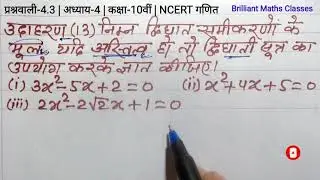 प्रश्नवाली-4.3 | अध्याय-4 | कक्षा-10वीं | NCERT गणित
Brilliant Maths Classes
उदाहरण (13) निम्न द्विघात समीकरणों के
मूल, यदि अस्तित्व हो तो द्विघाती सूत्र का
उपयोग करके ज्ञात कीजिए।
(i) 3x²-5x+2=0 (ii) x²+4x+5=0
(iii) 2x²-2√2x+1=0